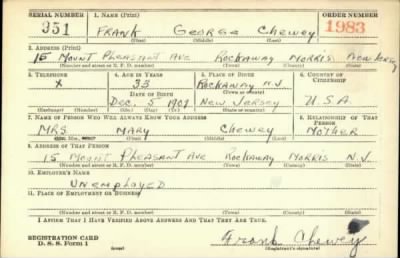 SERIAL NUMBER 1. NAME (Print) ORDER NUMBER
351 FRANK GEORGE CHEWEY 1983
(First) (Middle) (Last)
2. ADDRESS (Print)
15 MOUNT PLEASANT AVE ROCKAWAY MORRIS NEW JERSEY
(Number and street or R. F. D. number) (Town) (County) (State)
3. TELEPHONE 4. AGE IN YEARS 5. PLACE OF BIRTH 6. COUNTRY OF CITIZENSHIP
X 33 ROCKAWAY N.J
DATE OF BIRTH (Town or county)
DEC. 5 1907 NEW JERSEY U.S.A
(Exchange) (Number) (Mo.) (Day) (Yr.) (State or country)
7. NAME OF PERSON WHO WILL ALWAYS KNOW YOUR ADDRESS 8. RELATIONSHIP OF THAT PERSON
MRS. MARY CHEWEY MOTHER
(Mr., Mrs., Miss) (First) (Middle) (Last)
9. ADDRESS OF THAT PERSON
15 MOUNT PLEASANT AVE ROCKAWAY MORRIS N.J.
(Number and street or R. F. D. number) (Town) (County) (State)
10. EMPLOYER'S NAME
UNEMPLOYED
11. PLACE OF EMPLOYMENT OR BUSINESS
(Number and street or R. F. D. number) (Town) (County) (State)
I AFFIRM THAT I HAVE VERIFIED ABOVE ANSWERS AND THAT THEY ARE TRUE.
REGISTRATION CARD
D. S. S. Form 1 (over) Frank Chewey
(Registrant's signature)